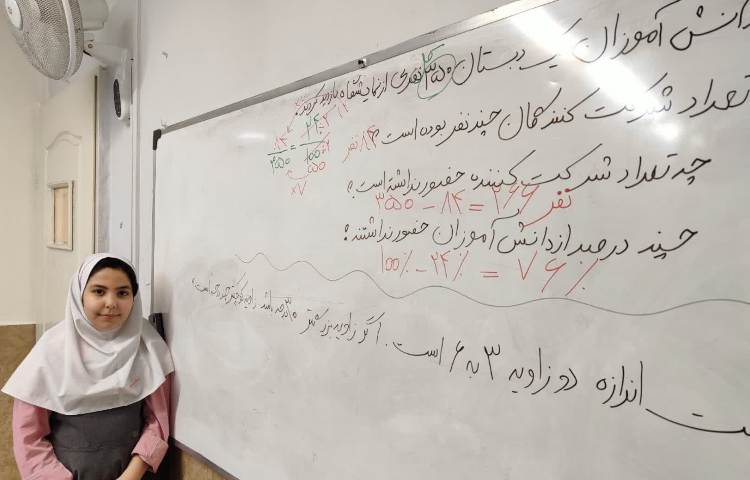 دانش آموزان یک دبستان ۳۵۰ نفری از نمایشگاه بازدید کردند.
تعداد شرکت کنندگان چند نفر بوده است ۸۴ نفر
۸۴/۳۵۰ = ۲۴/۱۰۰
×۷
چه تعداد شرکت کننده حضور نداشته است؟
۳۵۰ - ۸۴ = ۲۶۶ نفر
چند درصد از دانش آموزان حضور نداشتند؟
۱۰۰٪ - ۲۴٪ = ۷۶٪
اندازه دو زاویه ۳ به ۶ است. اگر زاویه بزرگتر